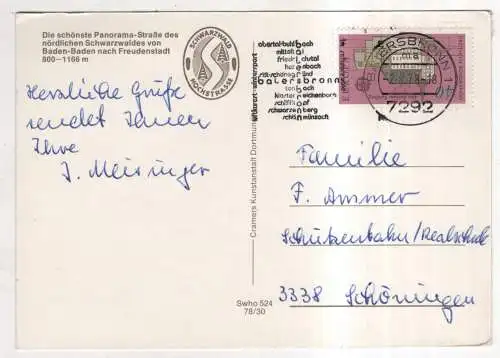 Die schönste Panorama-Straße des
nördlichen Schwarzwaldes von
Baden-Baden nach Freudenstadt
800–1166 m
SCHWARZWALD
HOCHSTRASSE
Herzliche Grüße
sendet Ihnen
Ihre
J. Meisinger
Cramers Kunstanstalt Dortmund
Swho 524
78/30
obertal-buhlbach
mitteltal
friedrichstal
huzenbach
röt-schönegründ
baiersbronn
tonbach
klosterreichenbach
schwarzenberg
schönmünzach
7292
Familie
F. Ammer
Schützenbahn/Realschule
3338 Schöningen